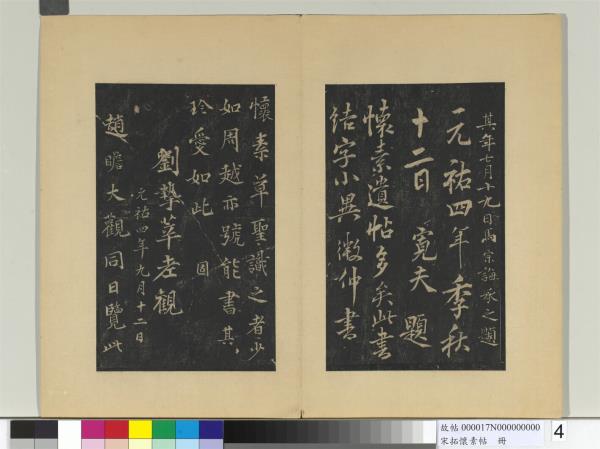 其年七月十九日馮宗誨承之題
元祐四年季秋
十二日 寬夫題
懷素遺帖多矣此書
結字小異微仲書
懷素草聖識之者少
如周越亦號能書其
珍愛如此 固
劉摯莘老觀
元祐四年九月十二日
趙瞻大觀同日覽此
故帖 000017N000000000
宋拓懷素帖 冊
4